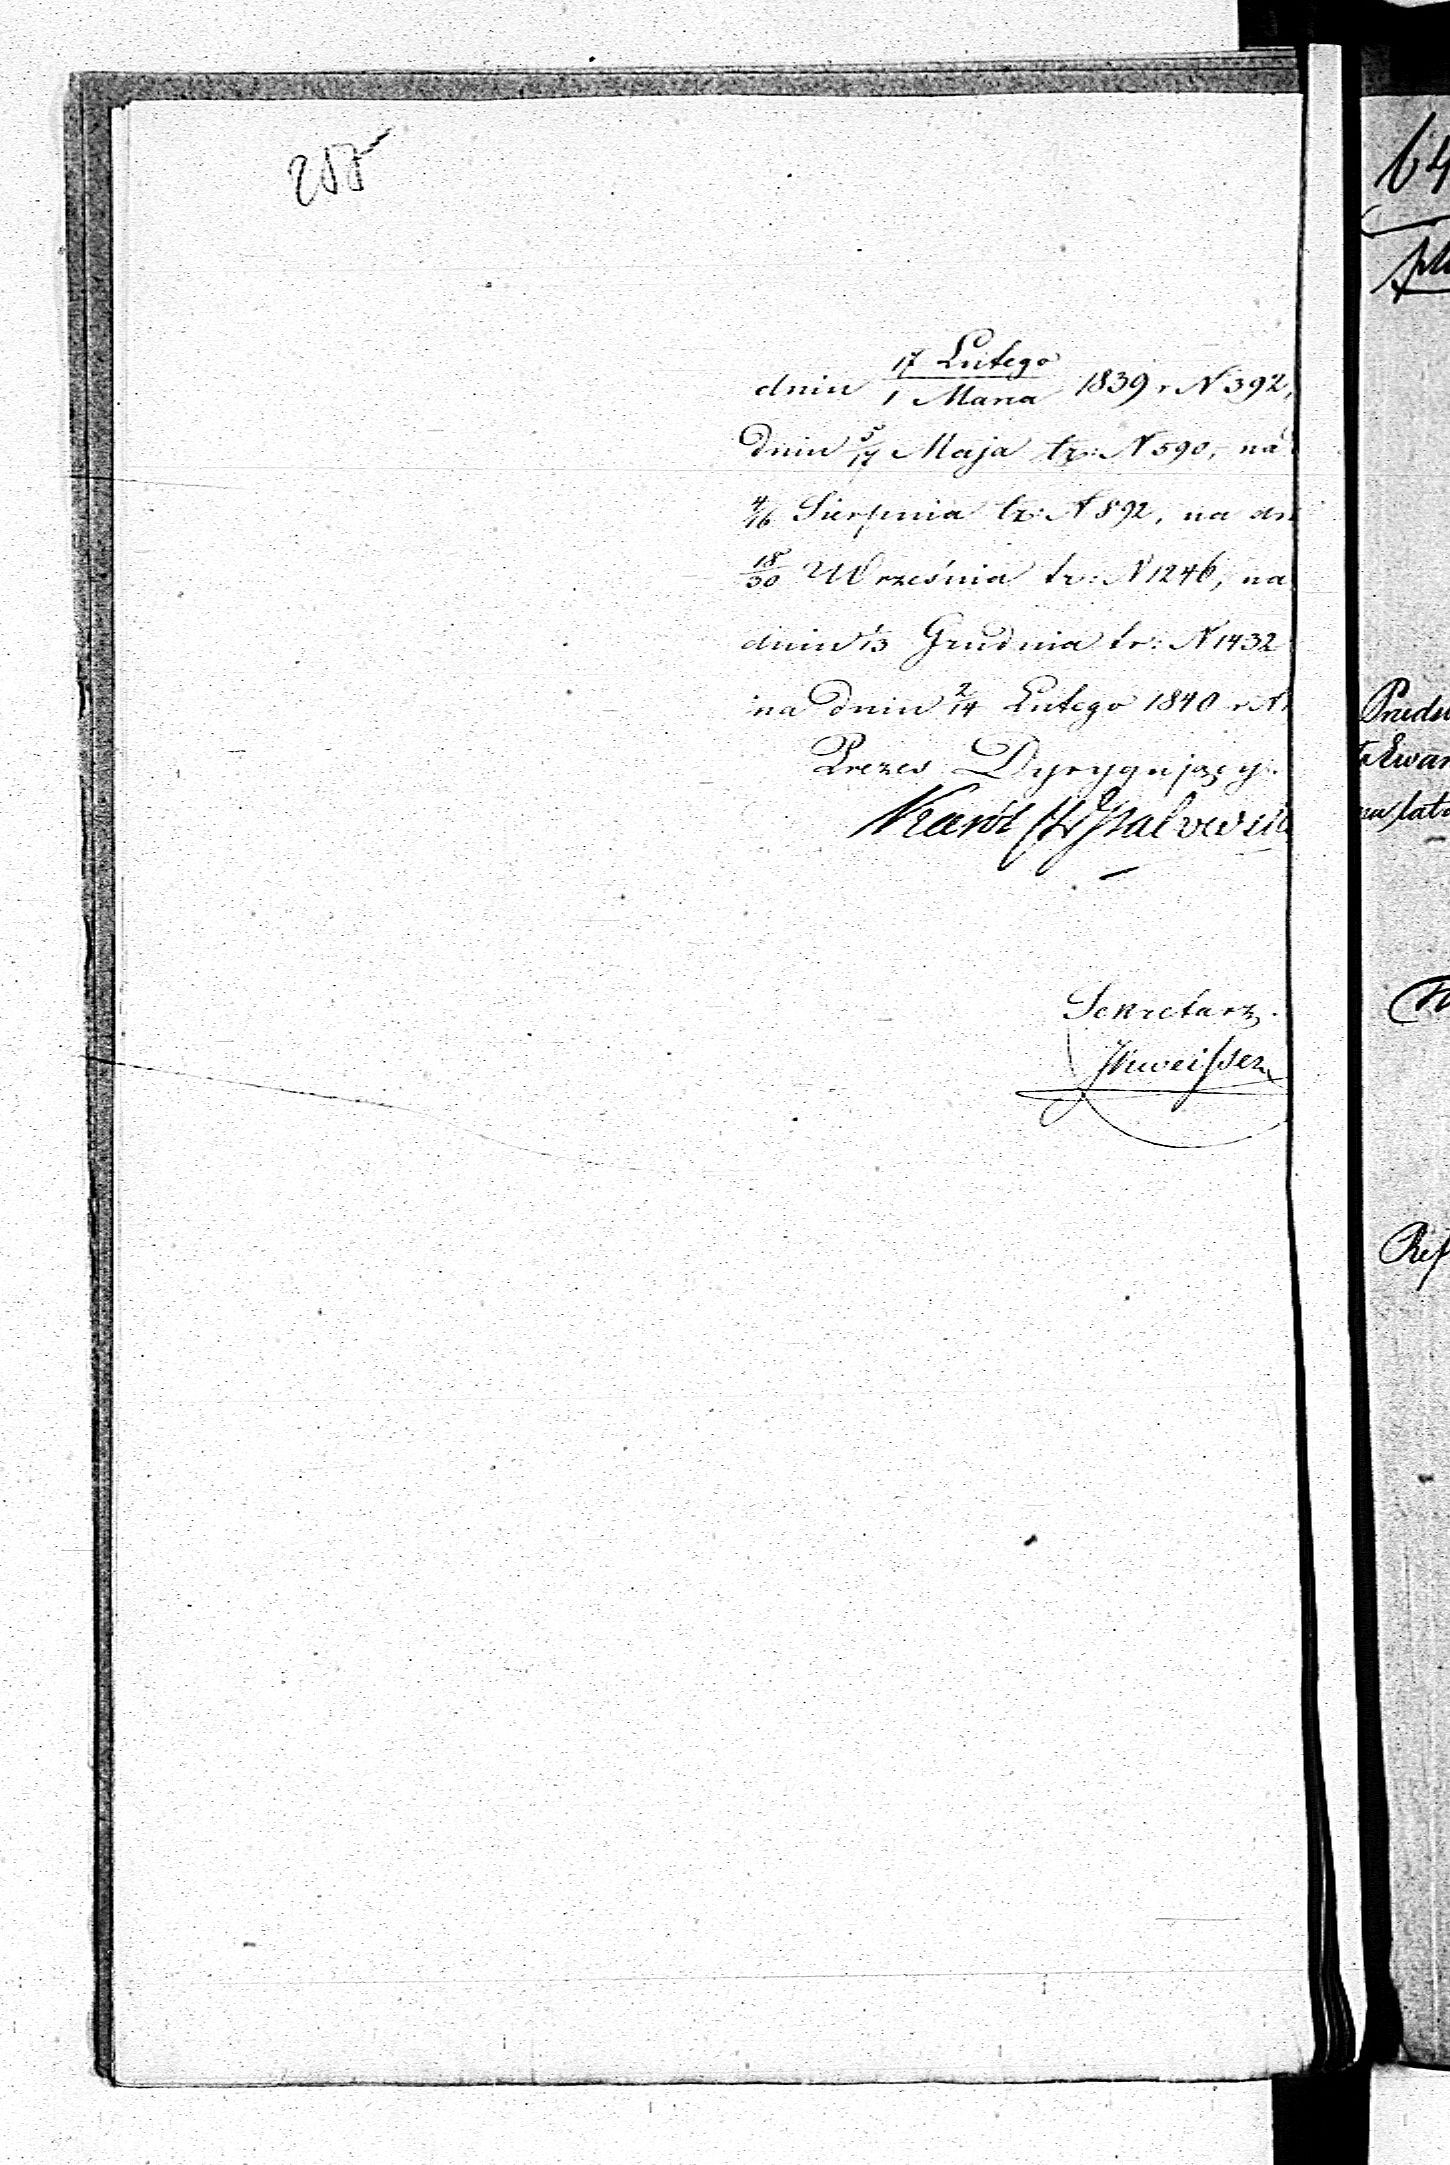 dniu 17 Lutego / 1 Marca 1839 r N 392,
dniu 5/17 Maja tr: N 590, na
4/16 Sierpnia tr: N 892, na dn
18/30 Września tr: N 1246, na
dniu 13 Grudnia tr: N 1432
na dniu 2/14 Lutego 1840 r N
Prezes Dyrygujący.
Karól
Sekretarz.
64
Ref